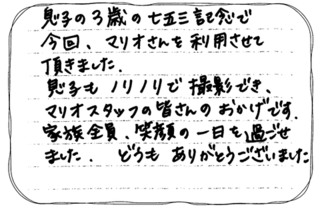 息子の3歳の七五三記念で
今回、マリオさんを利用させて
頂きました.
息子も ノリノリで 撮影でき、
マリオスタッフの皆さんの おかげです.
家族全員、笑顔の一日を過ごせ
ました. どうも ありがとうございました